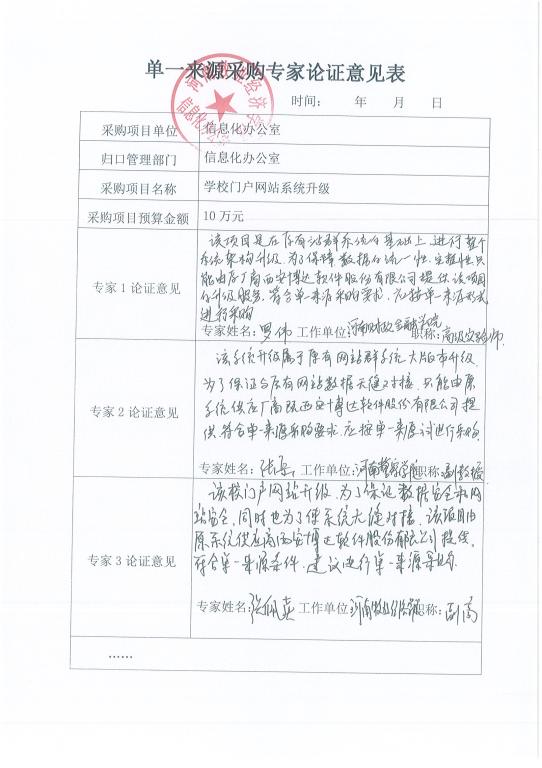 单一来源采购专家论证意见表
时间： 年 月 日
采购项目单位 信息化办公室
归口管理部门 信息化办公室
采购项目名称 学校门户网站系统升级
采购项目预算金额 10万元
专家1论证意见
该项目是在原有站群系统的基础上，进行整个
系统架构升级，为了保障数据的统一性、完整性，只
能由原厂商西安博达软件股份有限公司提供该项目
的升级服务，符合单一来源采购要求，应按单一来源形式
进行采购
专家姓名：罗伟 工作单位：河南财政金融学院 职称：高级实验师
专家2论证意见
该系统升级属于原有网站群系统大版本升级，
为了保证与原有网站数据无缝对接，只能由原
系统供应厂商陕西西安博达软件股份有限公司提
供，符合单一来源采购要求，应按单一来源方式进行采购。
专家姓名： 工作单位：河南警察学院 职称：副教授
专家3论证意见
该校门户网站升级，为了保证数据安全和网
站安全，同时也为了使系统无缝对接，该项目由
原系统供应商西安博达软件股份有限公司提供，
符合单一来源条件，建议进行单一来源采购。
专家姓名：张佩 工作单位：河南牧业经济学院 职称：副高
……